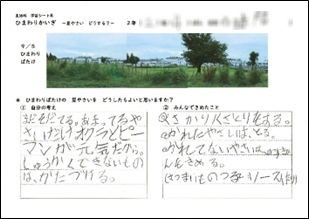 ひまわりかいぎ
ー夏やさい どうする?ー
2年
9/5
ひまわり
ばたけ
★ ひまわりばたけの 夏やさいを どうしたらよいと思いますか?
① 自分の考え
まだそだてる。あまってるや
さいだけオクラとピー
マンが元気だから。
しゅうかくできないもの
は、かたづける。
② みんなできめたこと
くさかり、くさとりをする。
かれたやさいは、とる。
かれてないやさいは、
んをきめる。
(さつまいものつる